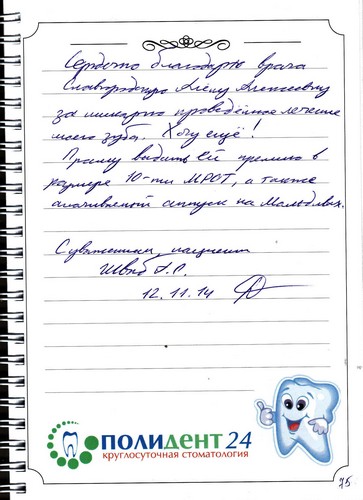 Сердечно благодарю врача
Славгородскую Алёну Алексеевну
за шикарно проведённое лечение
моего зуба. Хочу ещё!
Прошу выдать ей премию в
размере 10-ти МРОТ, а также
оплачиваемый отпуск на Мальдивах.
С уважением, пациент
Швяб А.С.
12.11.14
ПОЛИДЕНТ 24
круглосуточная стоматология
75